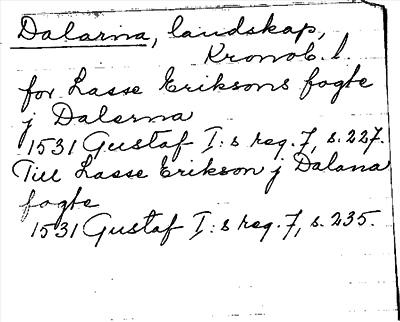 Dalarna, landskap,
Kronob. l.
for Lasse Eriksons fogte
j Dalerna
1531 Gustaf I:s reg. 7, s. 227.
Till Lasse Erikson j Dalana
fogte
1531 Gustaf I:s reg. 7, s. 235.